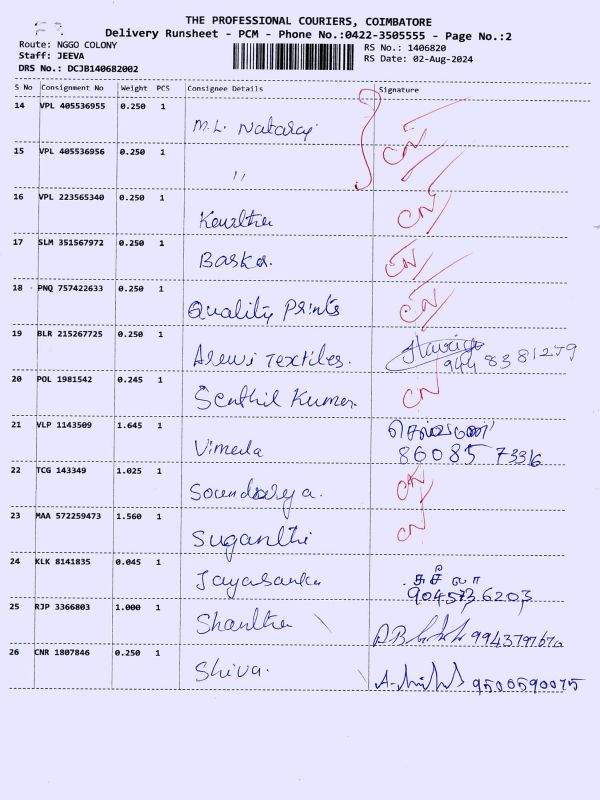 THE PROFESSIONAL COURIERS, COIMBATORE
Delivery Runsheet - PCM - Phone No.:0422-3505555 - Page No.:2
Route: NGGO COLONY
RS No.: 1406820
Staff: JEEVA
RS Date: 02-Aug-2024
DRS No.: DCJB140682002
S No Consignment No Weight PCS Consignee Details Signature
14 VPL 405536955 0.250 1 M.L. Nataraj
15 VPL 405536956 0.250 1 " CN
16 VPL 223565340 0.250 1 Kavitha CN
17 SLM 351567972 0.250 1 Baskar. CN
18 PNQ 757422633 0.250 1 Quality Prints CN
19 BLR 215267725 0.250 1 Textiles. 944 8381279
20 POL 1981542 0.245 1 Senthil Kumar. CN
21 VLP 1143509 1.645 1 Vimala 86085 73316
22 TCG 143349 1.025 1 Soundarya. CN
23 MAA 572259473 1.560 1 Suganthi CN
24 KLK 8141835 0.045 1 சுசீலா
25 RJP 3366803 1.000 1 Shantha
26 CNR 1807846 0.250 1 Shiva. 9500590075